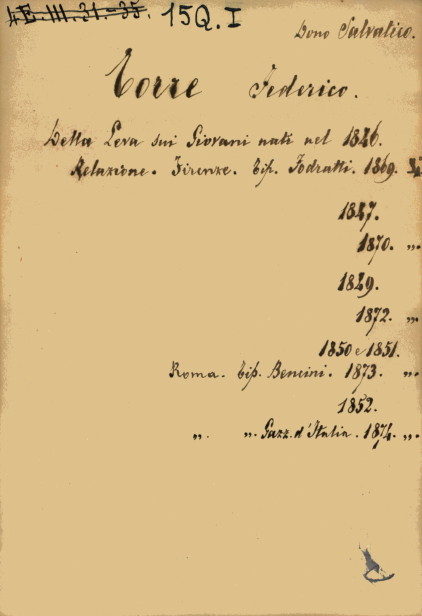 4 E. III. 31.-35. 15Q. I
Dono Salvatico.
Torre Federico.
Della Leva sui Giovani nati nel 1846.
Relazione. Firenze. Tip. Fodratti. 1869.
1847.
1870. „.
1849.
1872. „.
1850 e 1851.
Roma. Tip. Bencini. 1873. „.
1852.
„. „. Gazz. d'Italia. 1874. „.